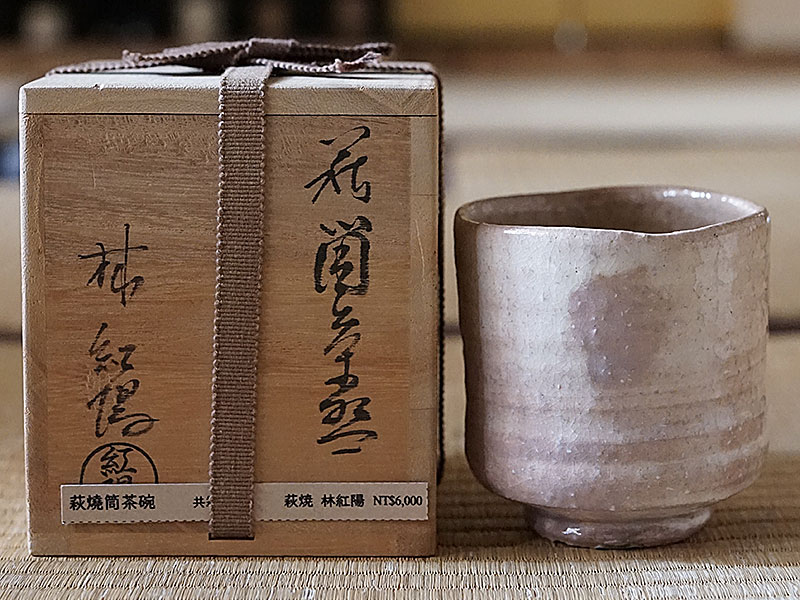 萩筒茶盌
林紅陽
紅陽
萩燒筒茶碗 共 萩燒 林紅陽 NT$6,000